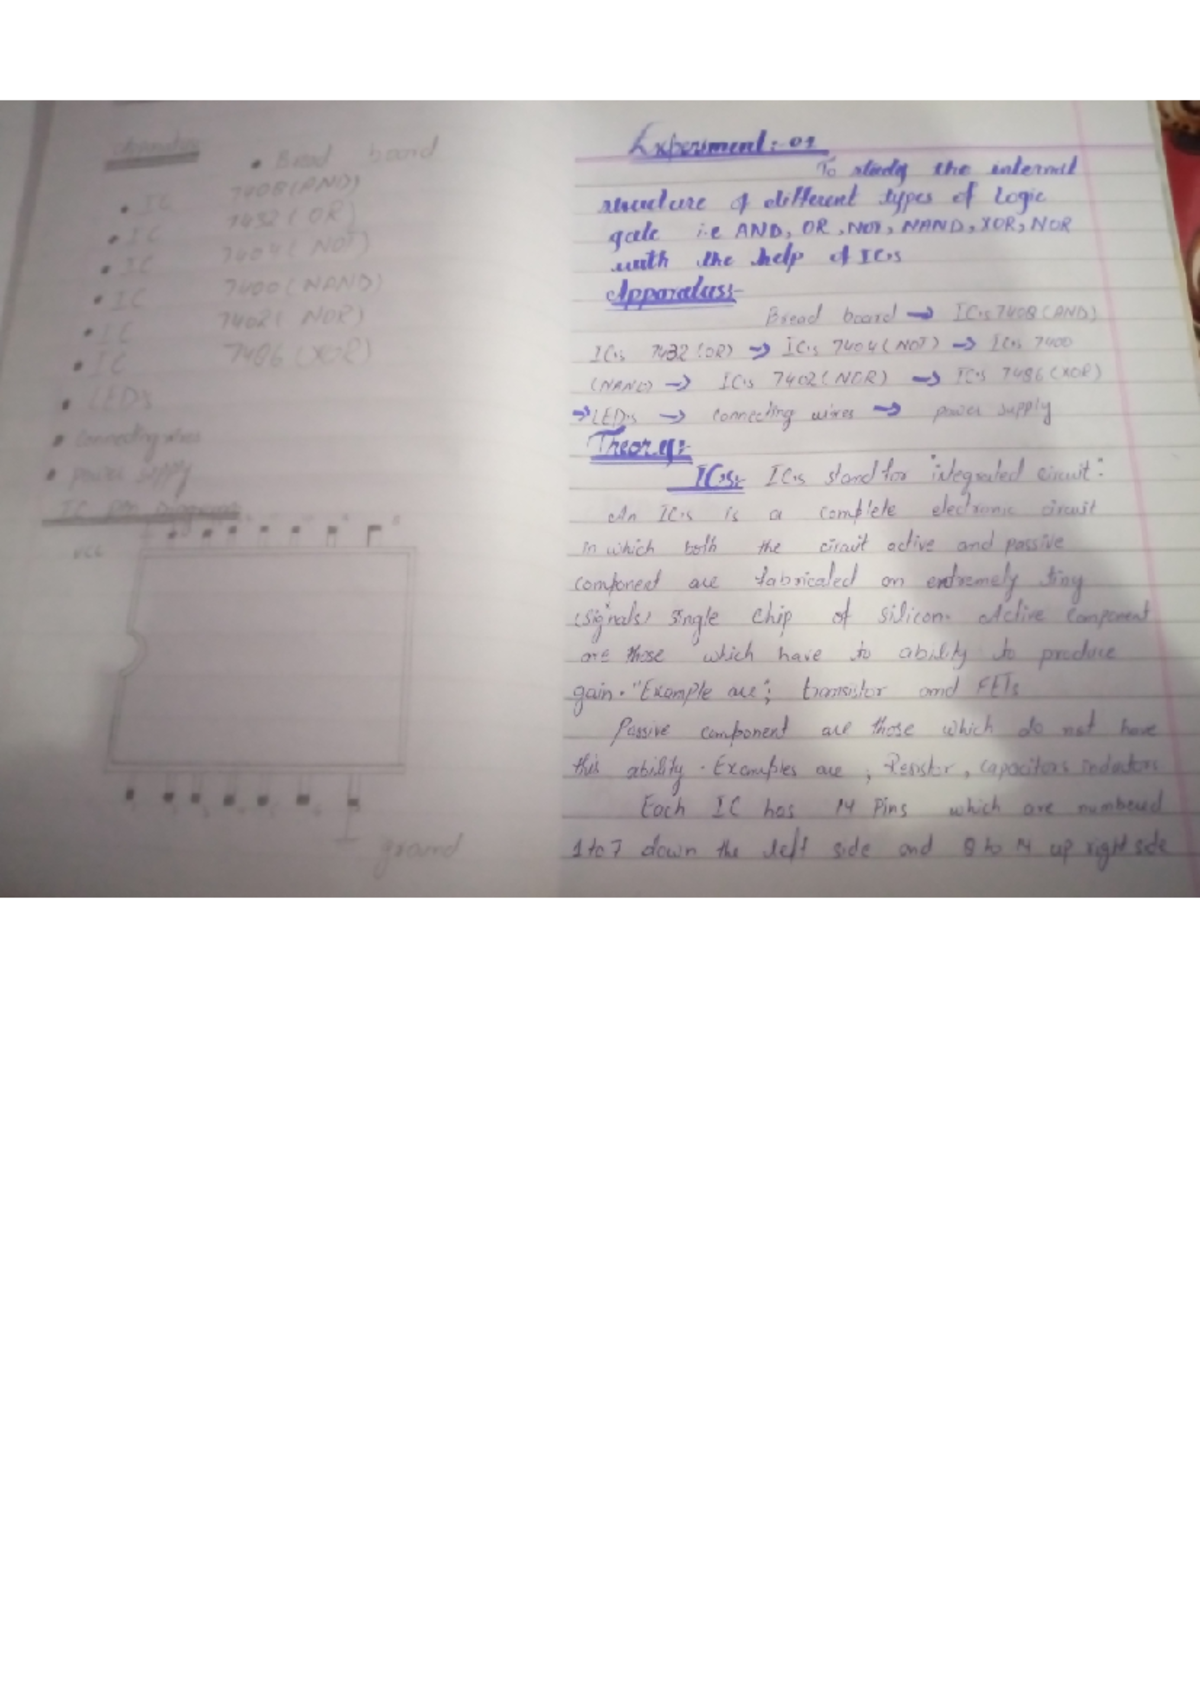 Apparatus
• Bread board
• IC 7408(AND)
• IC 7432(OR)
• IC 7404(NOT)
• IC 7400(NAND)
• IC 7402(NOR)
• IC 7486(XOR)
• LEDs
• Connecting wires
• power supply
IC Pin Diagram
VCC
ground
Experiment:-01
To study the internal
structure of different types of Logic
gate i.e AND, OR, NOT, NAND, XOR, NOR
with the help of IC,s
Apparatus:-
Bread board → IC,s 7408(AND)
IC,s 7432(OR) → IC,s 7404(NOT) → IC,s 7400
(NAND) → IC,s 7402(NOR) → IC,s 7486(XOR)
→ LED,s → Connecting wires → power supply
Theory:-
IC,s:- IC,s stand for "integrated circuit":
An IC,s is a complete electronic circuit
in which both the circuit active and passive
component are fabricated on extremely tiny
(signals) single chip of silicon. Active component
are those which have to ability to produce
gain. "Example are"; transistor and FETs
Passive component are those which do not have
this ability. Examples are; Resistor, capacitors inductors
Each IC has 14 Pins which are numbered
1 to 7 down the left side and 8 to 14 up right side